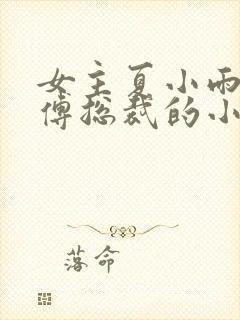 女主夏小雨
傅总裁的小
落命